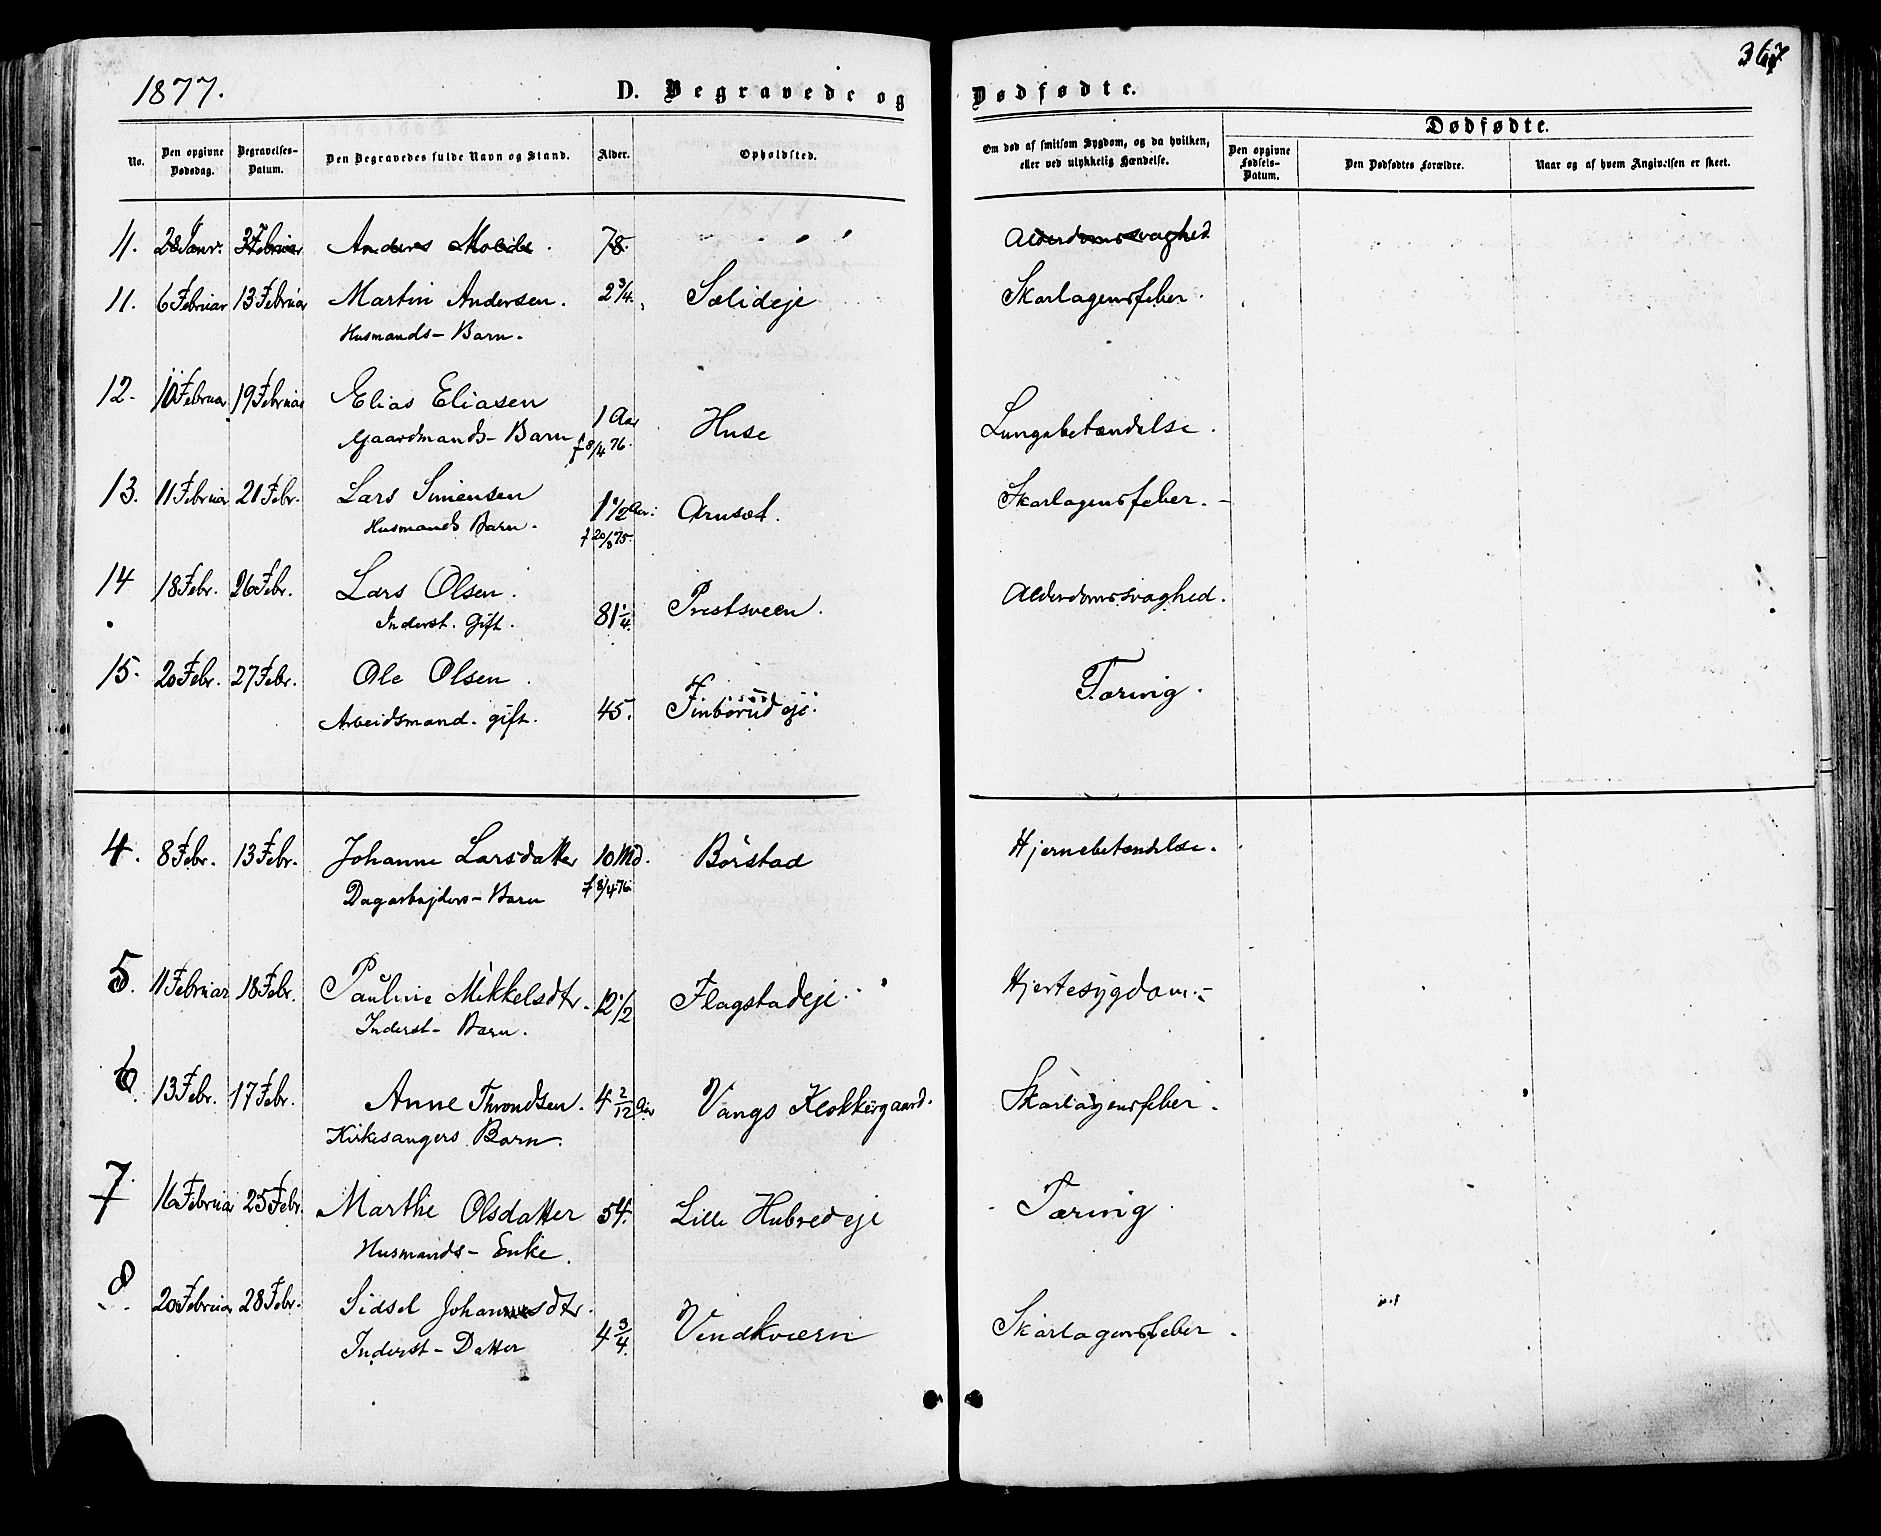 1877.
367
D. Begravede og Dødfødte.
No.
Den opgivne Dødsdag.
Begravelses-Datum.
Den Begravedes fulde Navn og Stand.
Alder.
Opholdsted.
Om død af smitsom Sygdom, og da hvilken, eller ved ulykkelig Hændelse.
Dødfødte.
Den opgivne Fødsels-Datum.
Den Dødfødtes Forældre.
Naar og af hvem Angivelsen er skeet.
11. 28 Janr. 3 Februar Anders 78. Alderdomssvaghed
11. 6 Februar 13 Februar Martin Andersen. 2 3/4. Sælideje Skarlagensfeber.
Husmands-Barn.
12. 10 Februar 19 Februar Elias Eliasen 1 Aar Huse Lungebetændelse.
Gaardmands-Barn f 8/4 76.
13. 11 Februar 21 Febr. Lars Simensen 1 1/2 Aar. Arnset. Skarlagensfeber.
Husmands Barn. f 20/8 75.
14 18 Febr. 26 Febr. Lars Olsen. 81 1/4. Prestsveen. Alderdomssvaghed.
Inderst. Gift.
15. 20 Febr. 27 Febr. Ole Olsen. 45. Finbörud eje. Tæring.
Arbeidsmand. gift.
4. 8 Febr. 13 Febr. Johanne Larsdatter 10 Md. Börstad Hjernebetændelse.
Dagarbejders-Barn f 8/4 76
5. 11 Februar 18 Febr. Pauline Mikkelsdtr. 12 1/2 Flagstadeje. Hjertesygdom.
Inderst-Barn.
6. 13 Febr. 17 Febr. Anne Throndsen. 4 2/12 Aar Vangs Klokkergaard. Skarlagensfeber.
Kirkesangers Barn.
7. 16 Februar 25 Febr. Marthe Olsdatter 54. Lille Hubred eje Tæring.
Husmands-Enke.
8. 20 Februar 28 Febr. Sidsel Johannesdtr. 4 3/4. Vindkværn Skarlagensfeber.
Inderst-Datter